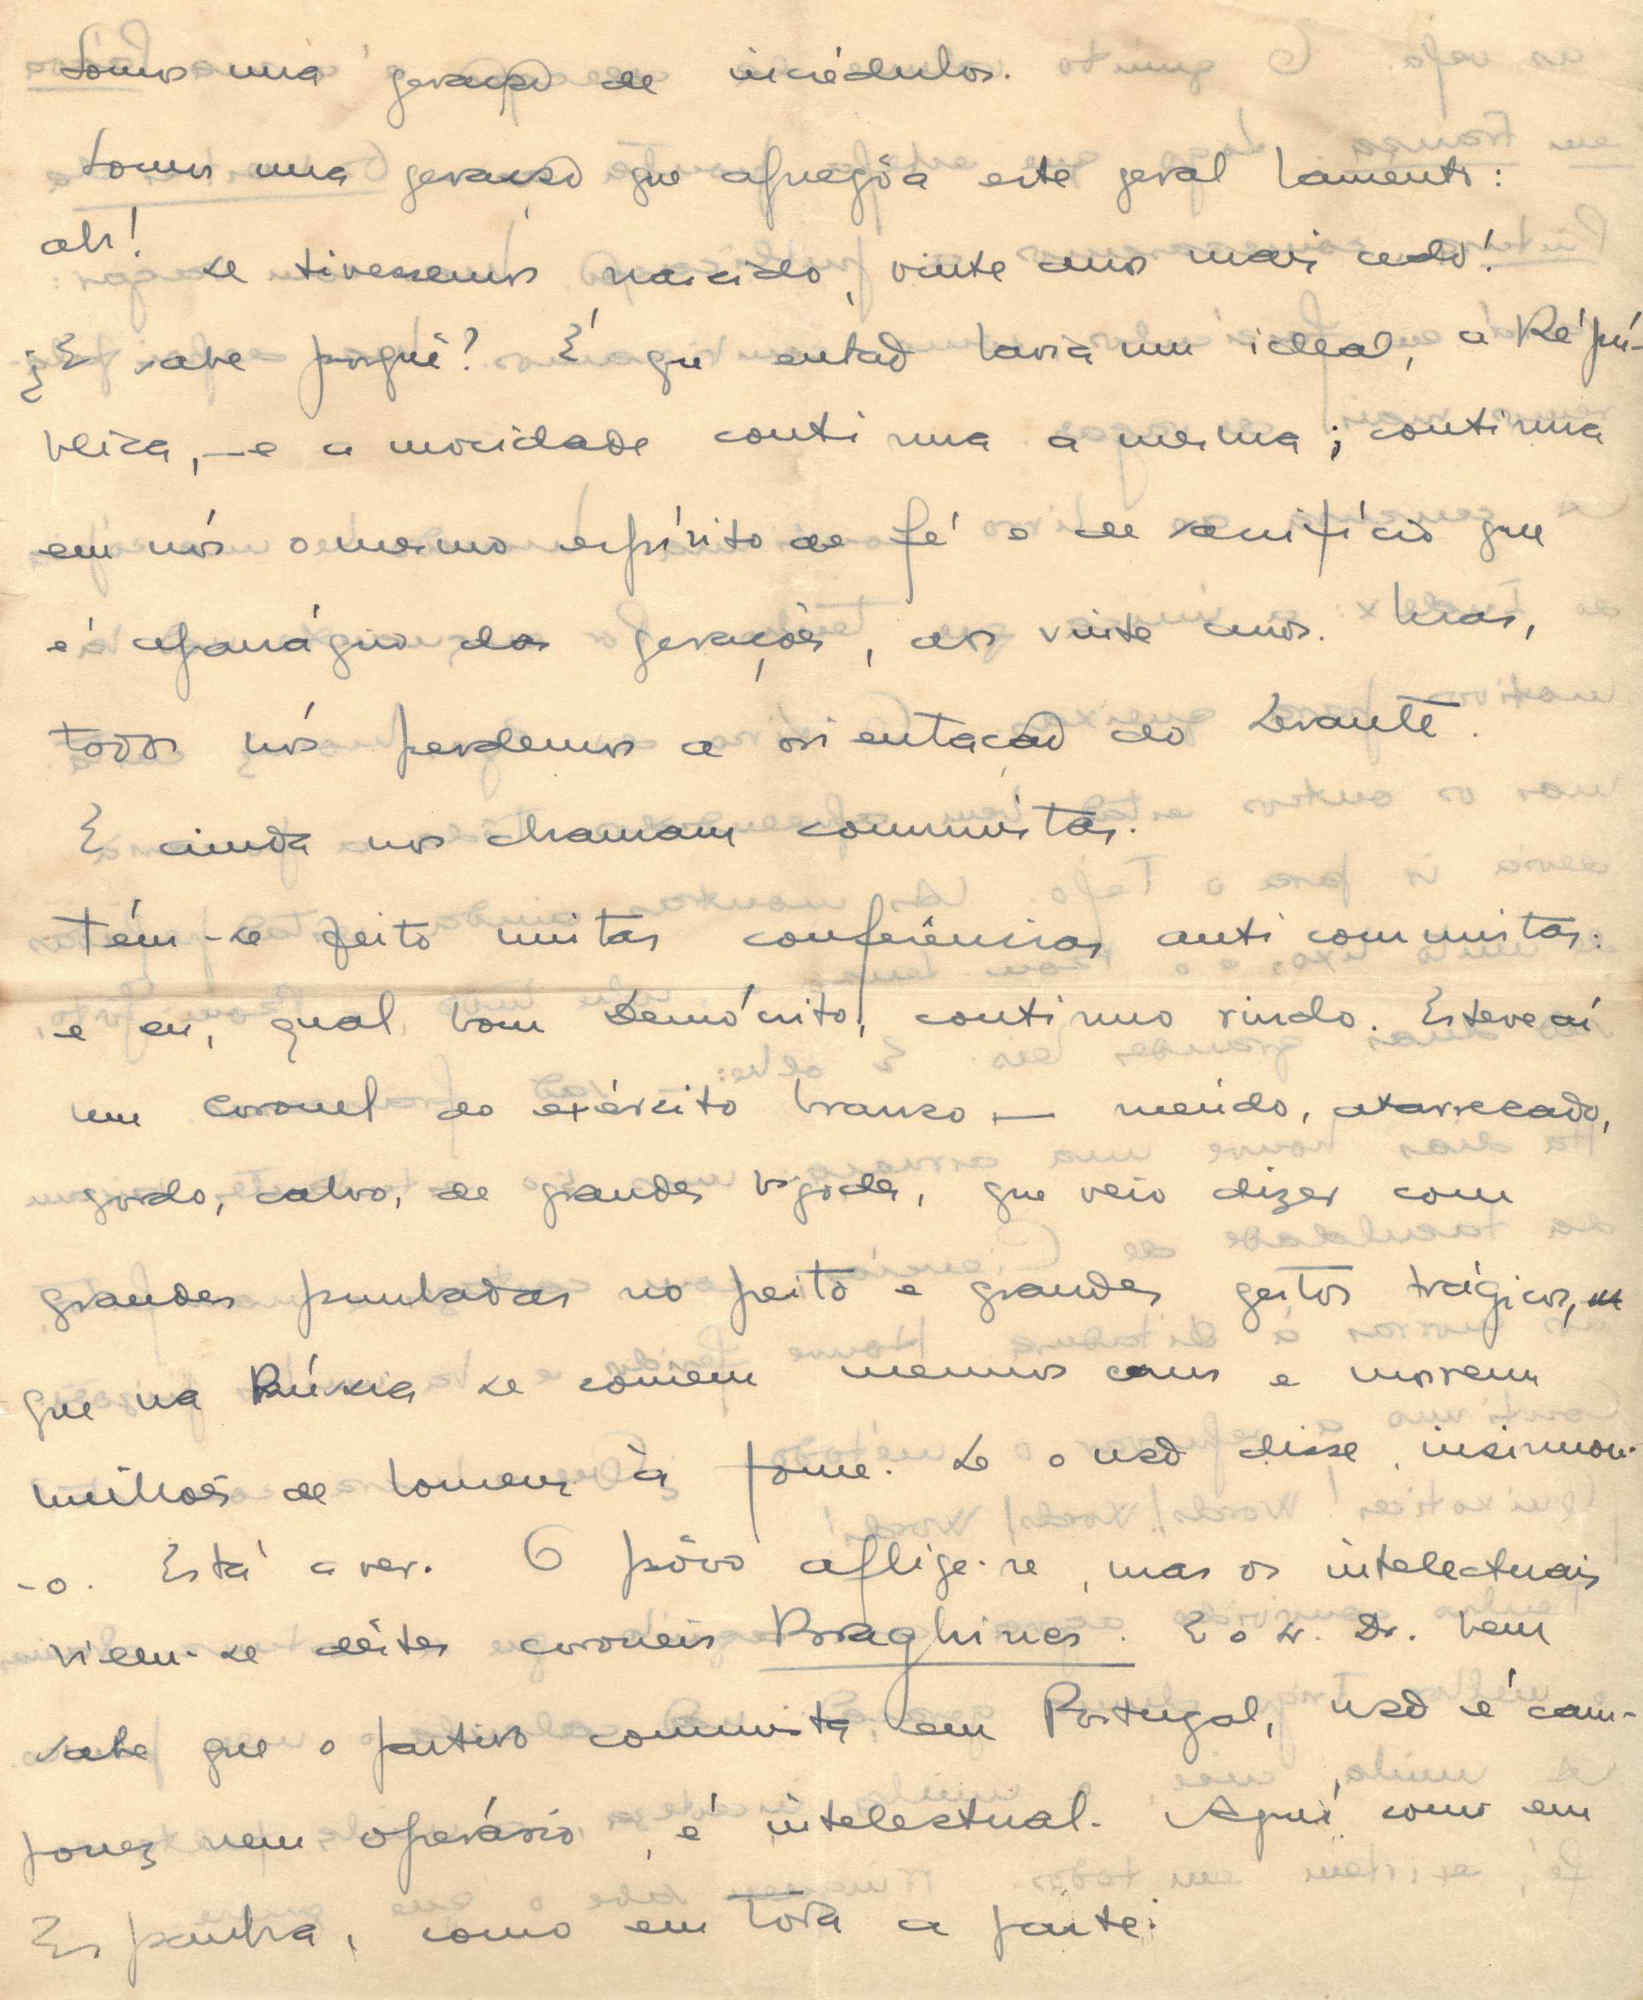 Somos uma geração de incrédulos.
Somos uma geração que apregôa este geral lamento:
ah! se tivessemos nascido, vinte anos mais cedo!
¿E sabe porquê? É que então havia um ideal, a Repú-
blica, — e a mocidade continua a mesma; continua
em nós o mesmo espírito de fé e de sacrifício que
é apanágio das gerações, aos vinte anos. Mas,
todos nós perdemos a orientação do Levante.
E ainda nos chamam comunistas.
Têm-se feito muitas conferências anti comunistas:
e eu, qual bom Demócrito, continuo rindo. Esteve aí
um coronel do exército branco — meúdo, atarrecado,
gordo, calvo, de grandes bigodes, que veio dizer com
grandes punhadas no peito e grandes gestos trágicos,
que na Rússia se comem menus caus e morrem
milhões de homens à fome. Se o não disse, insinuou-
-o. Está a ver. O pôvo aflige-se, mas os intelectuais
riem-se dêstes coroneis Braghines. E o Sr. Dr. bem
sabe que o partido comunista, em Portugal, não é cam-
ponez nem operário, é intelectual. Aqui como em
Espanha, como em toda a parte: